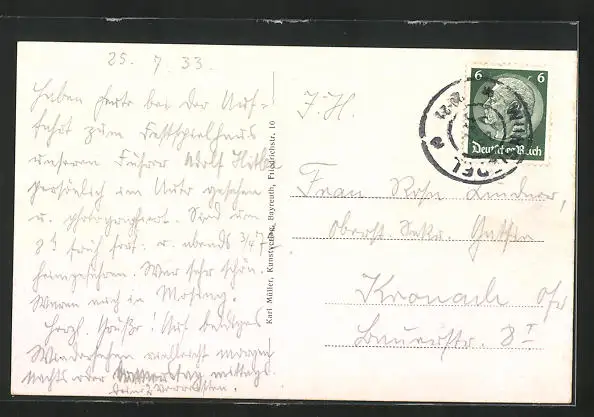 25. 7. 33.
Haben heute bei der Auf=
fahrt zum Festspielhaus
unseren Führer Adolf Hitler
persönlich im Auto gesehen
u. photographiert. Sind um
8 h früh fort. u. abends 3/4 7 h
heimgefahren. War sehr schön.
Waren auch in
Herzl. Grüße! Auf baldiges
Wiedersehen vielleicht morgen
nachts oder mittags.
Deine 2 Verreisten.
Karl Müller, Kunstverlag, Bayreuth, Friedrichstr. 10
6 6
Deutsches Reich
F. H.
Frau Rosa Lindner,
Oberst. Sekr. Gattin
Kronach Ofr
Bauerstr. 8 I